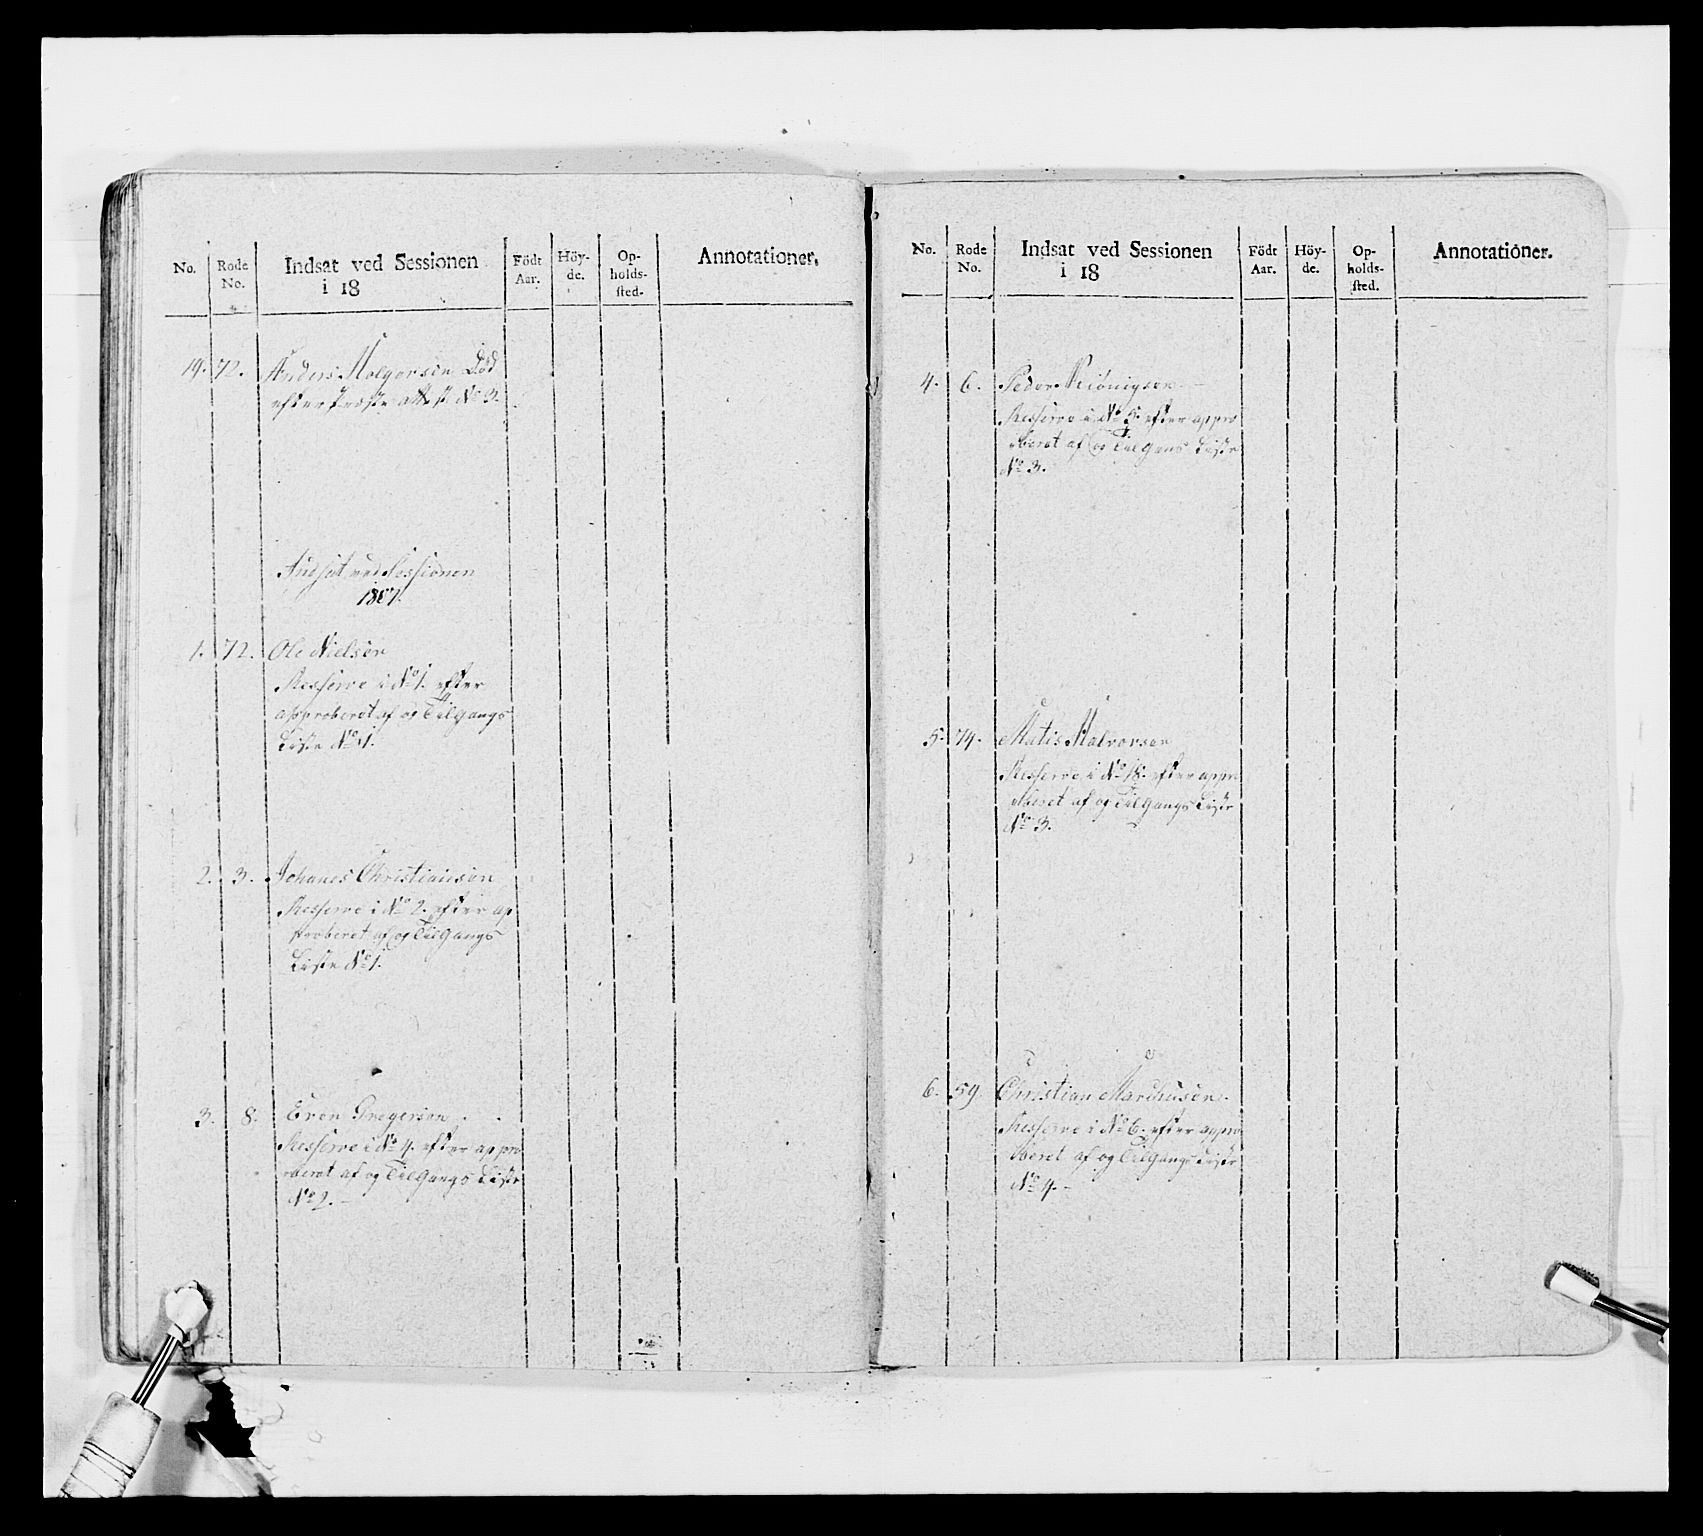 No.
Rode No.
Indsat ved Sessionen i 18
Födt Aar.
Höy-de.
Op-holds-sted.
Annotationer.
14. 72. Anders Holgersen Död
efter Præste Attest No 3.
Indsat ved Sessionen
1807.
1. 72. Ole Nielsen
Resserve i No 1. efter
approberet af og Tilgangs
Liste No 1.
2. 3. Johanes Christiansen
Resserve i No 2. efter ap
proberet af og Tilgangs
Liste No 1.
3. 8. Even Gregersen.
Resserve i No 4. efter appro
beret af og Tilgangs Liste
No 2.
No.
Rode No.
Indsat ved Sessionen i 18
Födt Aar.
Höy-de.
Op-holds-sted.
Annotationer.
4. 6. Peder
Resserve i No 5. efter appro
beret af og Tilgangs Liste
No 3.
5. 74. Matis Halvorsen
Resserve i No 18. efter appro
beret af og Tilgangs Liste
No 3.
6. 59. Christian Marchusen.
Resserve i No 6. efter appro
beret af og Tilgangs Liste
No 4.